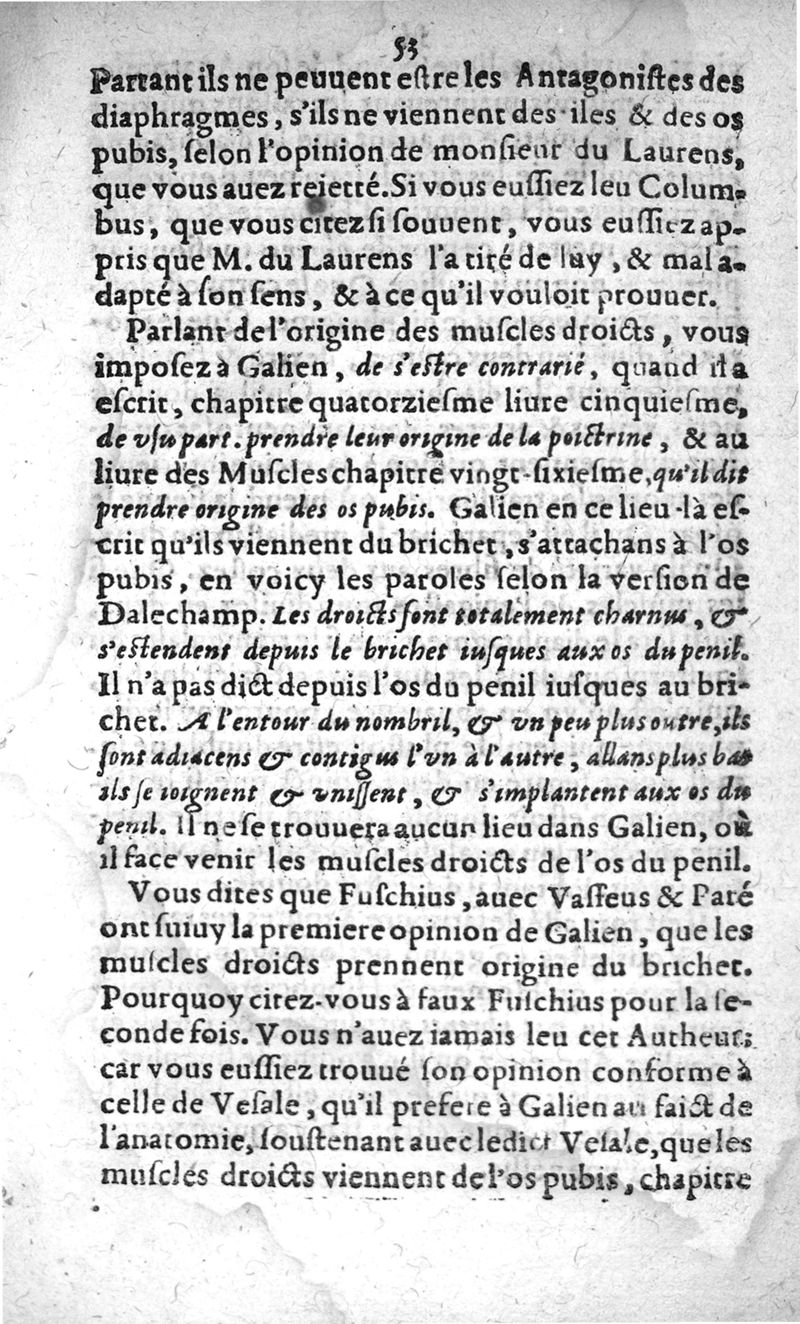 53
Partant ils ne peuuent eſtre les Antagoniſtes des
diaphragmes, s'ils ne viennent des iles & des os
pubis, ſelon l'opinion de monſieur du Laurens,
que vous auez reietté. Si vous euſſiez leu Colum-
bus, que vous citez ſi ſouuent, vous euſſiez ap-
pris que M. du Laurens l'a tiré de luy, & mal a-
dapté à ſon ſens, & à ce qu'il vouloit prouuer.
Parlant de l'origine des muſcles droicts, vous
impoſez à Galien, de s'eſtre contrarié, quand il a
eſcrit, chapitre quatorzieſme liure cinquieſme,
de vſu part. prendre leur origine de la poictrine, & au
liure des Muſcles chapitre vingt-ſixieſme, qu'il dit
prendre origine des os pubis. Galien en ce lieu-là eſ-
crit qu'ils viennent du brichet, s'attachans à l'os
pubis, en voicy les paroles ſelon la verſion de
Dalechamp. Les droicts ſont totalement charnus, &
s'eſtendent depuis le brichet iuſques aux os du penil.
Il n'a pas dict depuis l'os du penil iuſques au bri-
chet. A l'entour du nombril, & vn peu plus outre, ils
ſont adiacens & contigus l'vn à l'autre, allans plus bas
ils ſe ioignent & vniſſent, & s'implantent aux os du
penil. Il ne ſe trouuera aucun lieu dans Galien, où
il face venir les muſcles droicts de l'os du penil.
Vous dites que Fuſchius, auec Vaſſeus & Paré
ont ſuiuy la premiere opinion de Galien, que les
muſcles droicts prennent origine du brichet.
Pourquoy citez-vous à faux Fuſchius pour la ſe-
conde fois. Vous n'auez iamais leu cet Autheur;
car vous euſſiez trouué ſon opinion conforme à
celle de Veſale, qu'il prefere à Galien au faict de
l'anatomie, ſouſtenant auec ledict Veſale, que les
muſcles droicts viennent de l'os pubis, chapitre